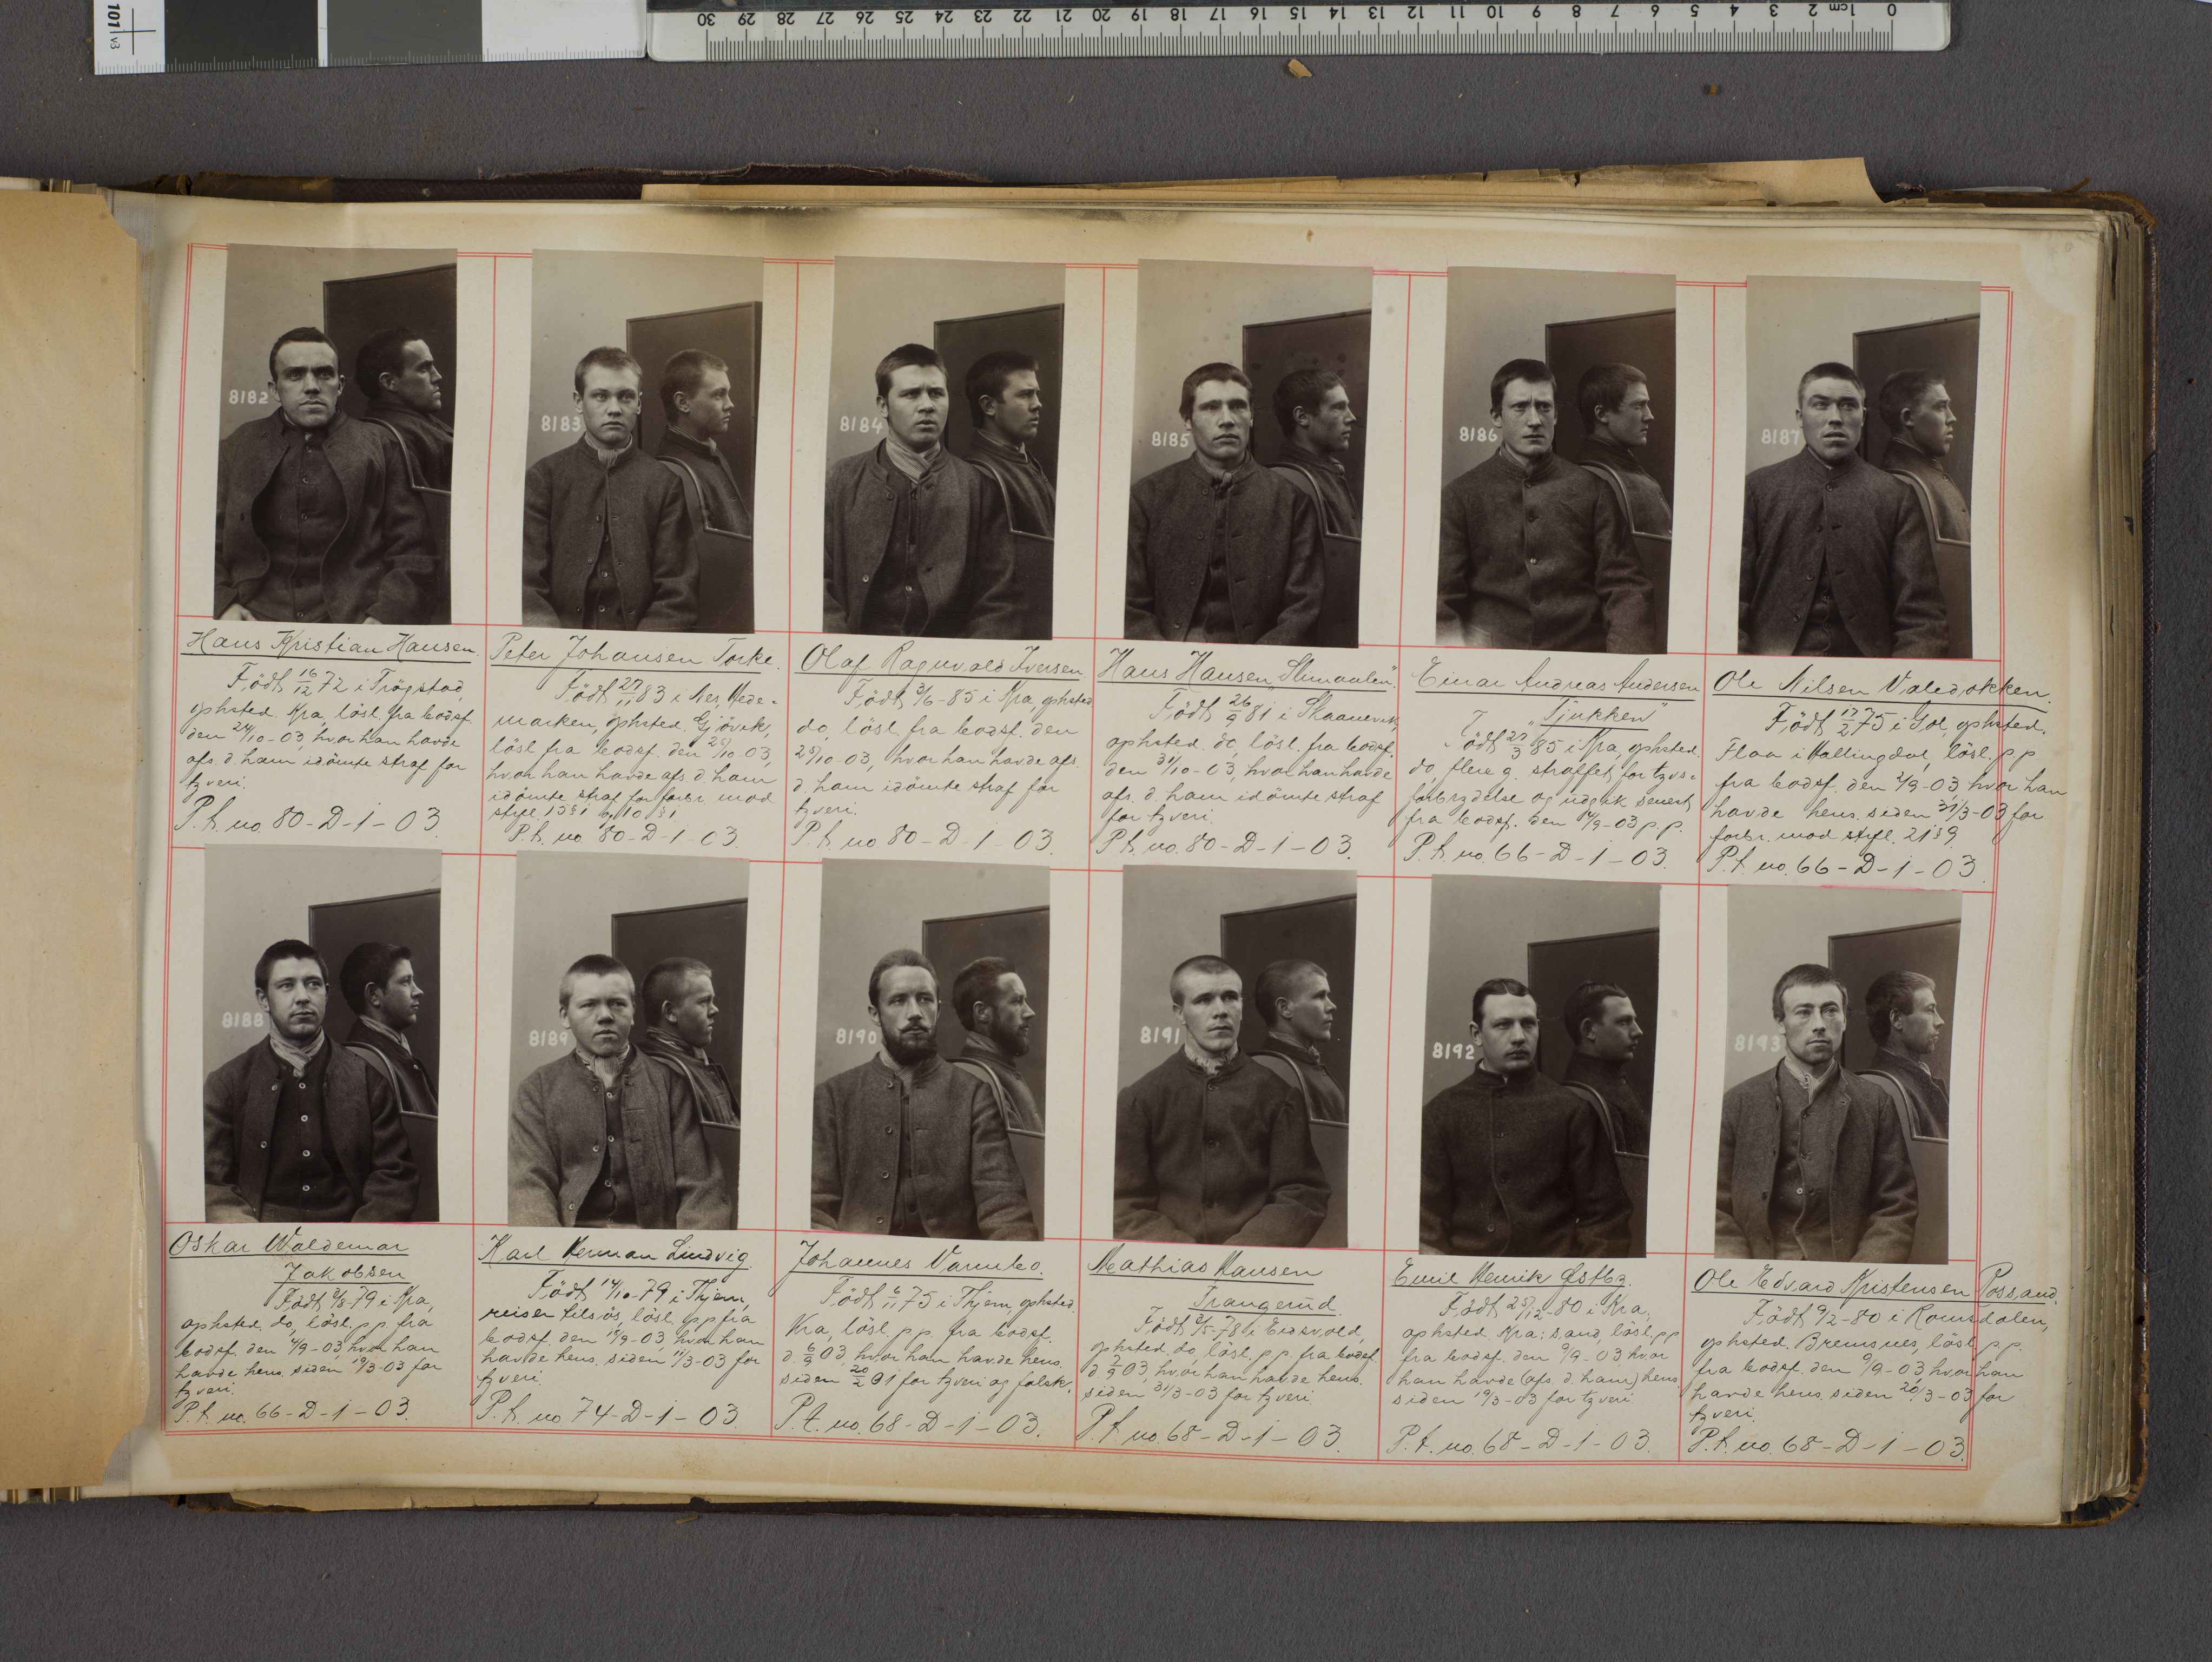 101 v3
30 29 28 27 26 25 24 23 22 21 20 19 18 17 16 15 14 13 12 11 10 9 8 7 6 5 4 3 2 1cm 0
8182
8183
8184
8185
8186
8187
Hans Kristian Hansen.
Födt 16/12 72 i Trögstad,
ophsted. Kra, lösl. fra bodsf.
den 24/10-03, hvor han havde
afs. d. ham idömte straf for
tyveri.
P.t. no. 80-D-1-03.
Peter Johansen Torke.
Födt 27/11 83 i Nes, Hede-
marken, ophsted. Gjövik,
lösl. fra bodsf. den 25/10 03,
hvor han havde afs. d. ham
idömte straf for forbr. mod
P.t. no. 80-D-1-03.
Olaf Ragnvald Iversen
Födt 3/6-85 i Kra, ophsted.
do, lösl. fra bodsf. den
25/10-03, hvor han havde afs.
d. ham idömte straf for
tyveri.
P.t. no 80-D-1-03.
Hans Hansen
Födt 26/9 81 i Skaanevik,
ophsted. do, lösl. fra bodsf.
den 31/10-03, hvor han havde
afs. d. ham idömte straf
for tyveri.
P.t. no. 80-D-1-03.
Einar Andreas Andersen
"Tjukken"
Födt 27/3 85 i Kra, ophsted.
do, flere g. straffet for tyvs-
forbrydelse og udgik senest
fra bodsf. den 4/9-03 p.p.
P.t. no. 66-D-1-03.
Ole Nilsen Valedokken.
Födt 17/2 75 i Gol, ophsted.
Flaa i Hallingdal, lösl. p.p
fra bodsf. den 2/9-03 hvor han
havde hens. siden 31/3-03 for
forbr. mod strfl. 21 § 9
P.t. no. 66-D-1-03.
8188
8189
8190
8191
8192
8193
Oskar Waldemar
Jakobsen
Födt 3/8-79 i Kra,
ophsted. do, lösl. p.p. fra
bodsf. den 4/9-03, hvor han
havde hens. siden 19/3-03 for
tyveri.
P.t. no. 66-D-1-03.
Karl Herman Ludvig.
Födt 14/10-79 i Thjem,
reiser tilsös, lösl. p.p fra
bodsf. den 19/9-03, hvor han
havde hens. siden 11/3-03 for
tyveri.
P.t. no 74-D-1-03.
Johannes Vambo.
Födt 6/11 75 i Thjem, ophsted.
Kra, lösl. p.p. fra bodsf.
d. 6/9 03, hvor han havde hens.
siden 20/2 01 for tyveri og falsk.
P.t. no. 68-D-1-03.
Mathias Hansen
Trangerud.
Födt 3/5-78 i Eidsvold,
ophsted. do, lösl. p.p. fra bodsf.
d. 7/9 03, hvor han havde hens.
siden 31/3-03 for tyveri.
P.t. no. 68-D-1-03.
Emil Henrik Østby.
Födt 25/12-80 i Kra,
ophsted. Kra:sand, lösl. p.p
fra bodsf. den 9/9-03, hvor
han havde (afs. d. ham) hens.
siden 19/3-03 for tyveri
P.t. no. 68-D-1-03.
Ole Edvard Kristensen Rossand.
Födt 9/2-80 i Romsdalen,
ophsted. Bremsnes, lösl. p.p.
fra bodsf. den 9/9-03, hvor han
havde hens. siden 20/3-03 for
tyveri.
P.t. no. 68-D-1-03.